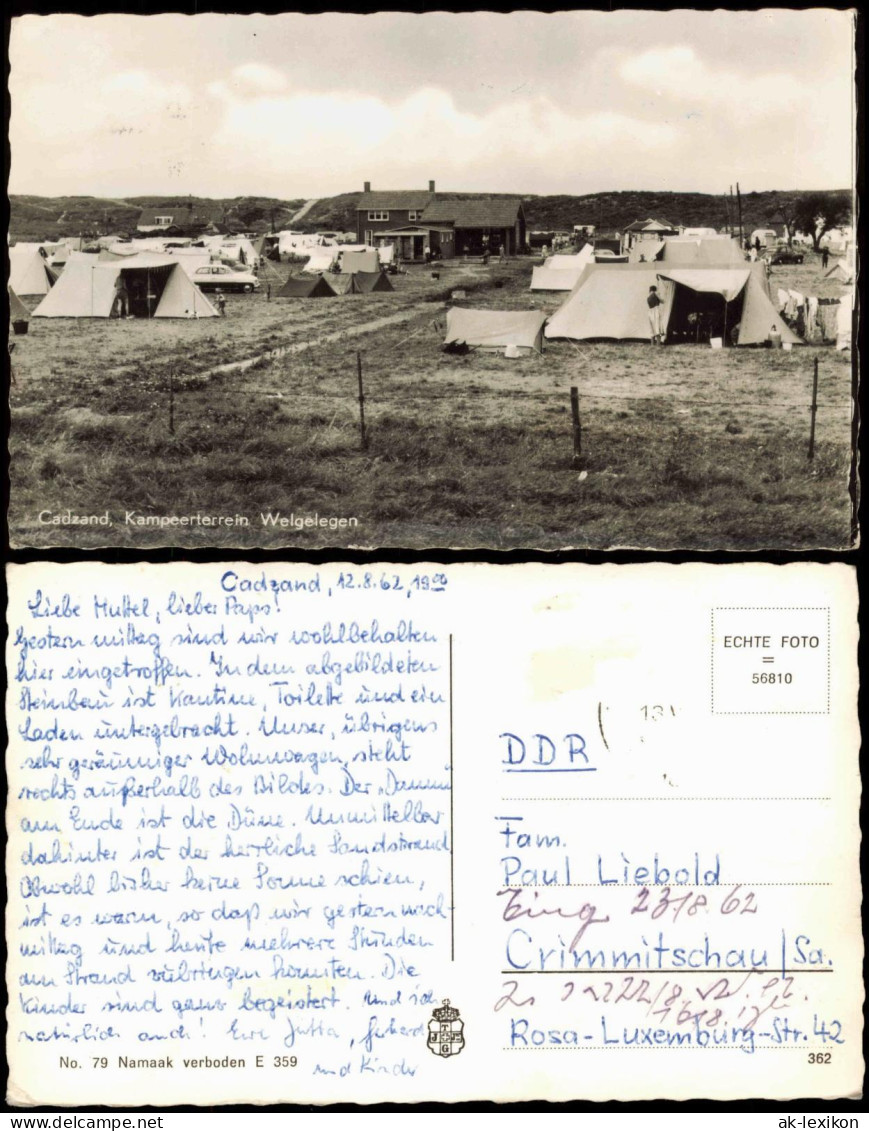 Cadzand, Kampeerterrein Welgelegen
Cadzand, 12.8.62, 19⁰⁰
Liebe Muttel, lieber Paps!
Gestern mittag sind wir wohlbehalten
hier eingetroffen. In dem abgebildeten
Steinbau ist Kantine, Toilette und ein
Laden untergebracht. Unser, übrigens
sehr geräumiger Wohnwagen, steht
rechts außerhalb des Bildes. Der "Damm"
am Ende ist die Düne. Unmittelbar
dahinter ist der herrliche Sandstrand.
Obwohl bisher keine Sonne schien,
ist es warm, so daß wir gestern nach-
mittag und heute mehrere Stunden
am Strand verbringen konnten. Die
Kinder sind ganz begeistert. Und ich
natürlich auch! Eure Jutta, Gerhard
und Kinder
ECHTE FOTO
=
56810
DDR
Fam.
Paul Liebold
Eing 23/8.62
Crimmitschau/Sa.
Rosa-Luxemburg-Str. 42
T
G
No. 79 Namaak verboden E 359
362
delcampe.net
ak-lexikon